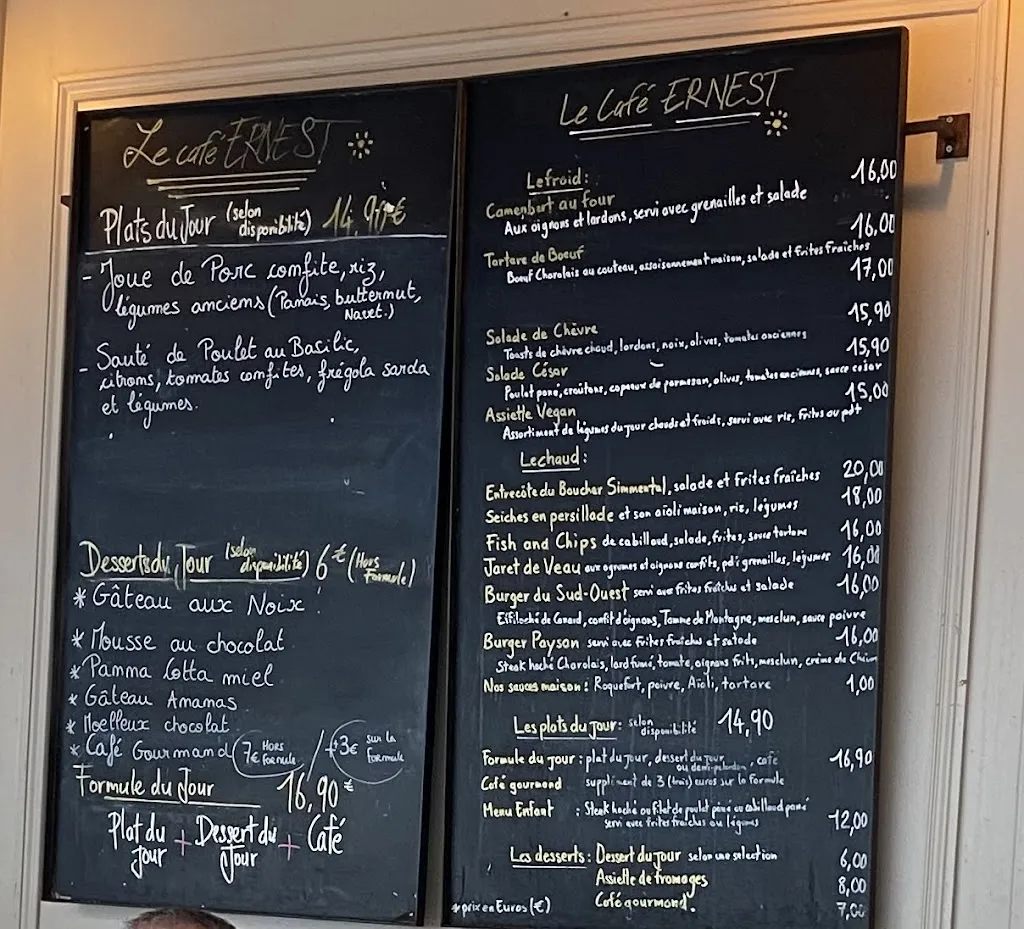 Le café ERNEST
Plats du Jour (selon disponibilité) 14,90 €
- Joue de Porc confite, riz,
légumes anciens (Panais, butternut,
Navet.)
- Sauté de Poulet au Basilic,
citrons, tomates confites, frégola sarda
et légumes.
Desserts du Jour (selon disponibilité) 6€ (Hors Formule)
* Gâteau aux Noix
* Mousse au chocolat
* Pamma Cotta miel
* Gâteau Ananas
* Moelleux chocolat
* Café Gourmand 7€ HORS Formule / +3€ sur la Formule
Formule du Jour 16,90 €
Plat du Jour + Dessert du Jour + Café
Le Café ERNEST
Le froid :
Camembert au four 16,00
Aux oignons et lardons, servi avec grenailles et salade
Tartare de Boeuf 16,00
Boeuf Charolais au couteau, assaisonnement maison, salade et frites Fraîches
17,00
Salade de Chèvre 15,90
Toasts de chèvre chaud, lardons, noix, olives, tomates anciennes
Salade César 15,90
Poulet pané, croûtons, copeaux de parmesan, olives, tomates anciennes, sauce césar
Assiette Vegan 15,00
Assortiment de légumes du jour chauds et froids, servi avec riz, Frites ou pdt
Le chaud :
Entrecôte du Boucher Simmental, salade et Frites Fraîches 20,00
Seiches en persillade et son aïoli maison, riz, légumes 18,00
Fish and Chips de cabillaud, salade, frites, sauce tartare 16,00
Jaret de Veau aux agrumes et oignons confits, pdt grenailles, légumes 16,00
Burger du Sud-Ouest servi avec frites fraîches et salade 16,00
Effiloché de Canard, confit d'oignons, Tomme de Montagne, mesclun, sauce poivre
Burger Paysan servi avec frites fraîches et salade 16,00
Steak haché Charolais, lard fumé, tomate, oignons frits, mesclun, crème de
Nos sauces maison : Roquefort, poivre, Aïoli, tartare 1,00
Les plats du jour : selon disponibilité 14,90
Formule du jour : plat du jour, dessert du jour, café 16,90
Café gourmand supplément de 3 (trois) euros sur la Formule
Menu Enfant : Steak haché ou filet de poulet pané ou cabillaud pané
servi avec frites fraîches ou légumes 12,00
Les desserts : Dessert du jour selon une sélection 6,00
Assiette de fromages 8,00
Café gourmand. 7,00
* prix en Euros (€)